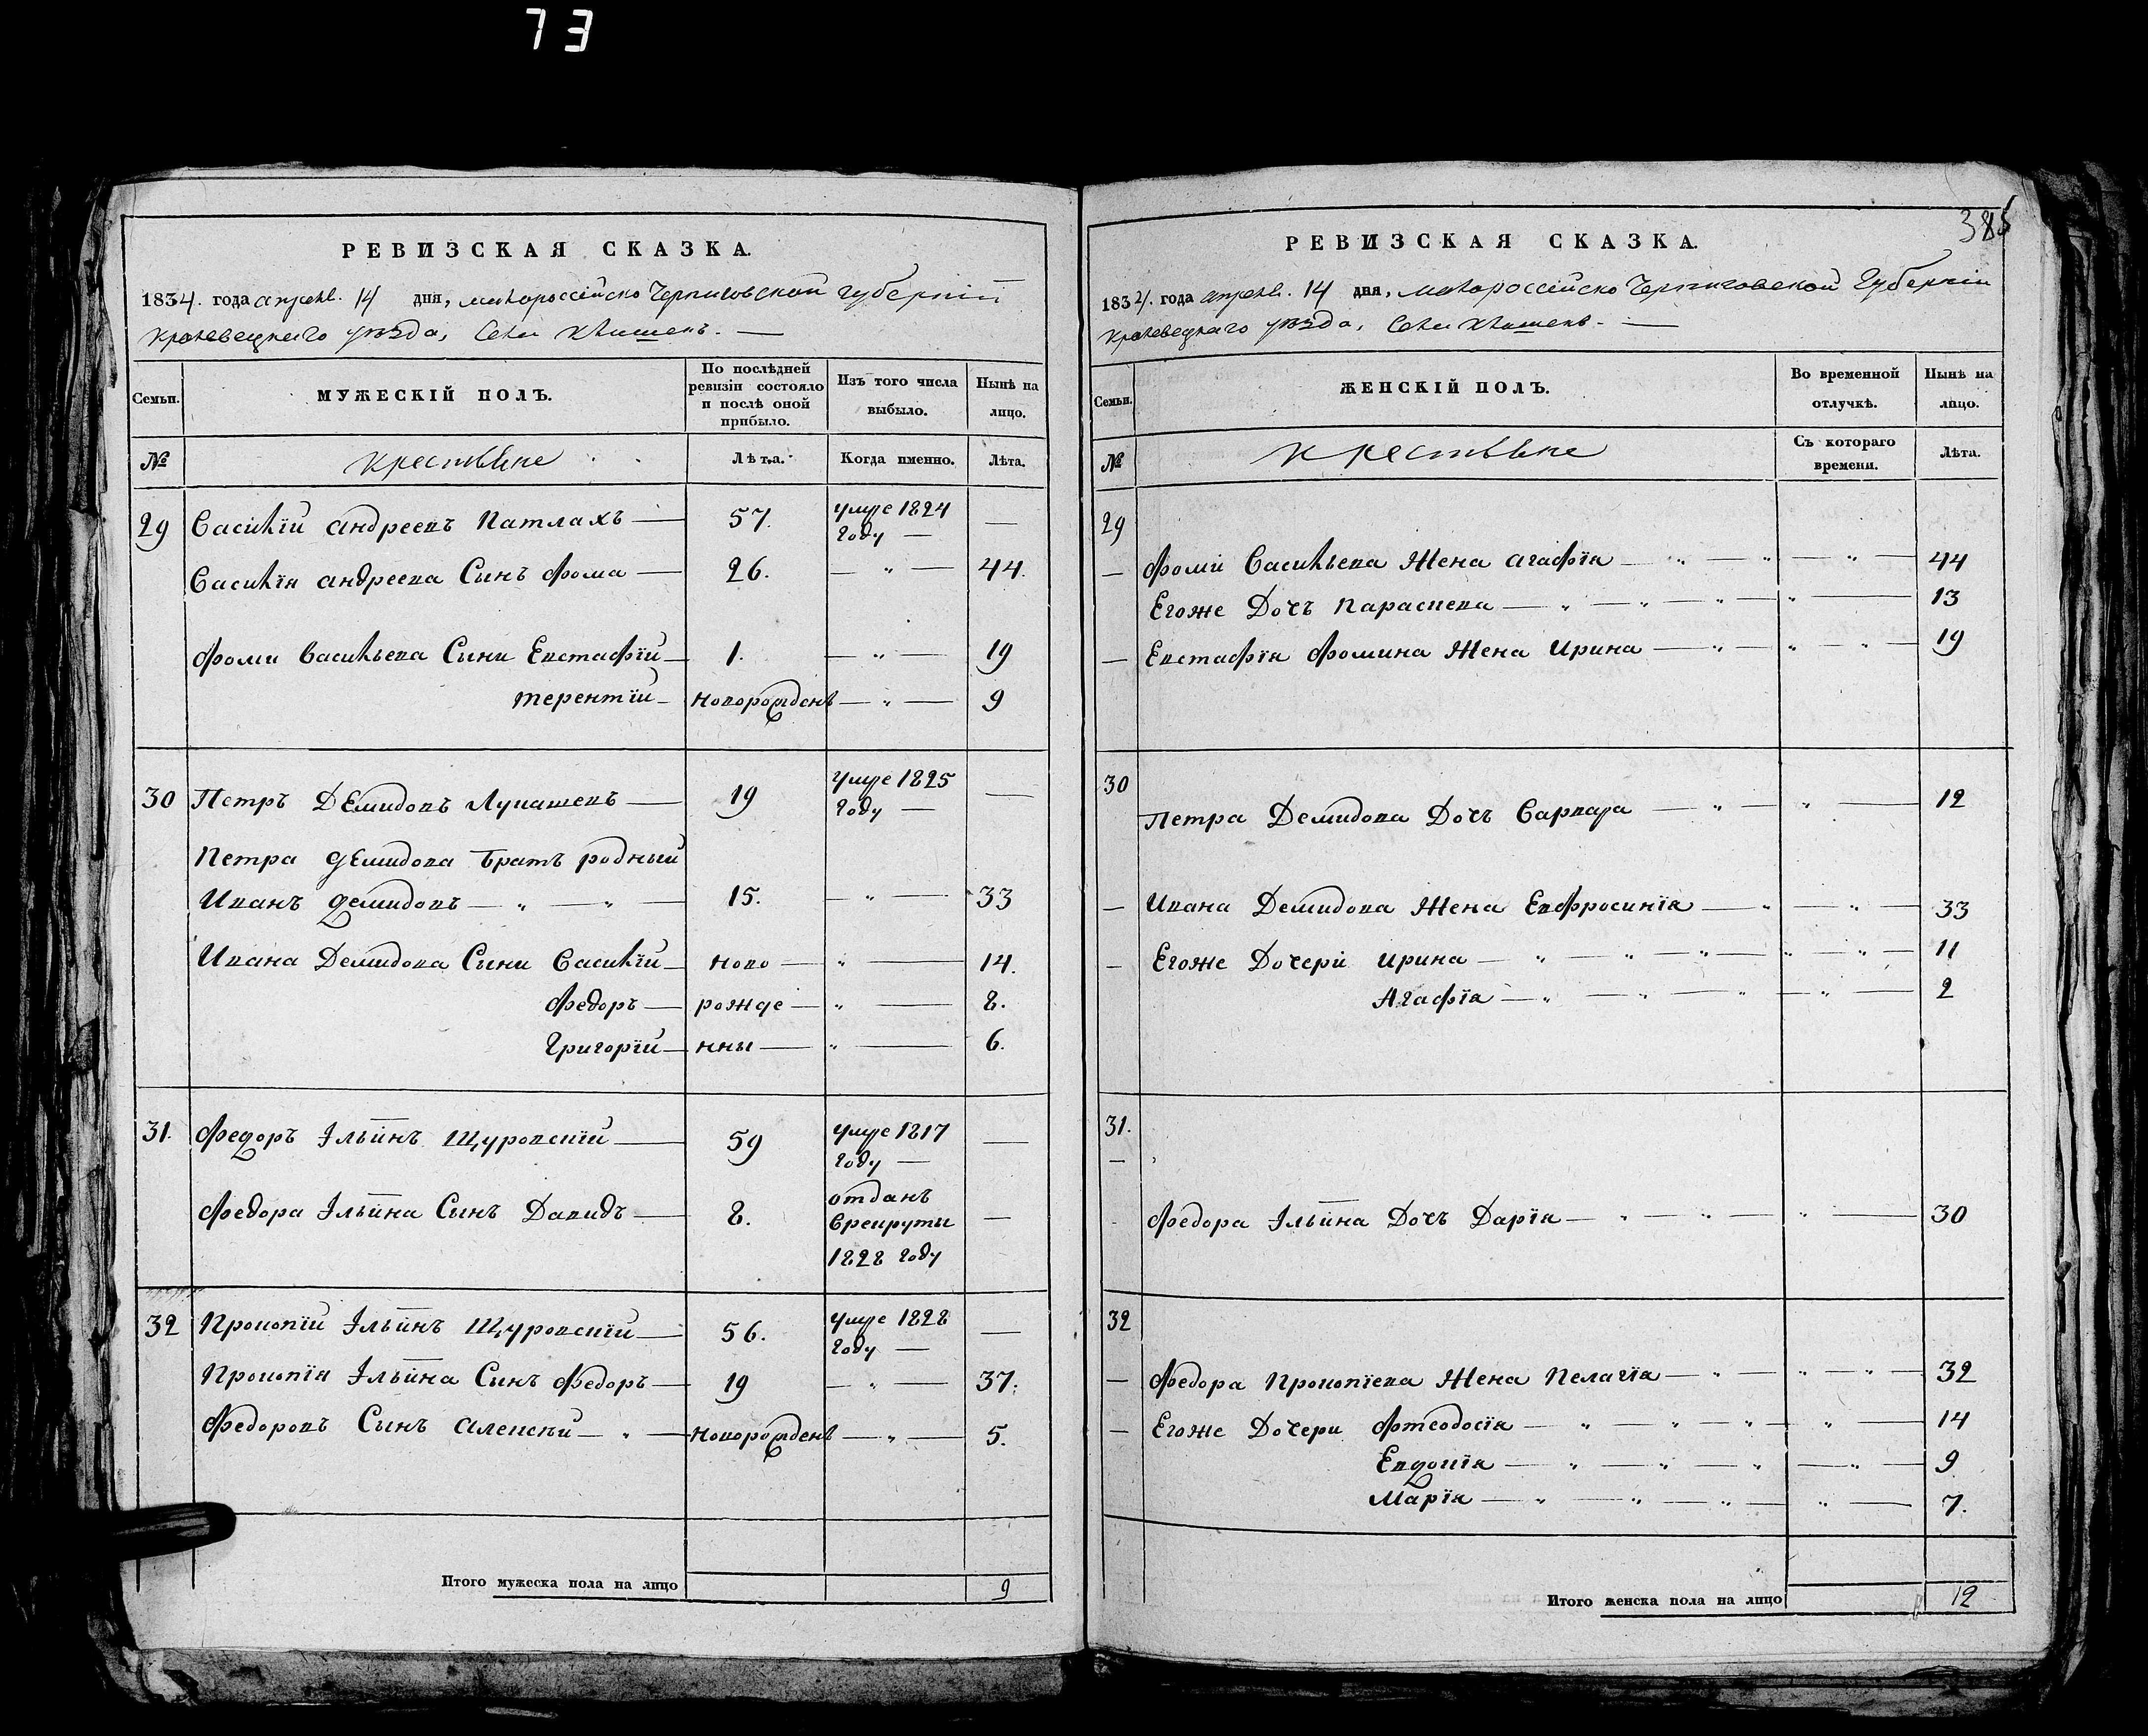 73
РЕВИЗСКАЯ СКАЗКА.
1834. года апреля. 14 дня, малороссійско Черниговской губерніи
Кролевецкаго уѣзда, Села Клишекъ.
Семьи.
МУЖЕСКІЙ ПОЛЪ.
По послѣдней ревизіи состояло и послѣ оной прибыло.
Изъ того числа выбыло.
Нынѣ на лицо.
№
крестьяне
Лѣта.
Когда именно.
Лѣта.
29 Василій андреевъ Патлахъ — 57. умре 1824 году —
Василія андреева Сынъ Фома — 26. — „ — 44.
Фоми Васильева Сини Евстафій — 1. — „ — 19
терентій — новорожденъ — „ — 9
30 Петръ Демидовъ Лупашевъ — 19 умре 1825 году —
Петра демидова братъ родный
Иванъ демидовъ — „ — „ — 15. — „ — 33
Ивана Демидова Сини Василій — ново — „ — 14.
Федоръ — рожде — „ — 8.
Григорій — нны — „ — 6.
31. Федоръ Ільинъ Щуровскій — 59 умре 1817 году —
Федора Ільина Сынъ Давидъ — 8. отданъ Врекруты 1828 году —
32 Прокопій Ільинъ Щуровскій — 56. умре 1828 году —
Прокопія Ільина Сынъ Федоръ — 19 — „ — 37.
Федоровъ Сынъ Алексѣй — „ — новорожденъ — „ — 5.
Итого мужеска пола на лицо 9
385
РЕВИЗСКАЯ СКАЗКА.
1834. года апреля. 14 дня, малороссійско Черниговской Губерніи
Кролевецкаго уѣзда, Села Клишекъ. —
Семьи.
ЖЕНСКІЙ ПОЛЪ.
Во временной отлучкѣ.
Нынѣ на лицо.
№
крестьяне
Съ котораго времени.
Лѣта.
29
— Фоми Васильева Жена агафія — „ — „ — „ — 44
Егоже Дочъ параскева — „ — „ — „ — „ — 13
— Евстафія Фомина Жена Ирина — „ — „ — „ — 19
30
Петра Демидова Дочъ Варвара — „ — „ — 12
— Ивана Демидова Жена Евфросинія — „ — „ — 33
— Егоже Дочери Ирина — „ — „ — „ — „ — „ — 11
Агафія — „ — „ — „ — „ — 2
31.
—
Федора Ільина Дочъ Дарія — „ — „ — „ — 30
32
— Федора Прокопіева Жена Пелагія — „ — „ — „ — 32
— Егоже Дочери Фтеодосія — „ — „ — „ — „ — 14
Евдокія — „ — „ — „ — „ — 9
Марія — „ — „ — „ — „ — 7.
Итого женска пола на лицо 12